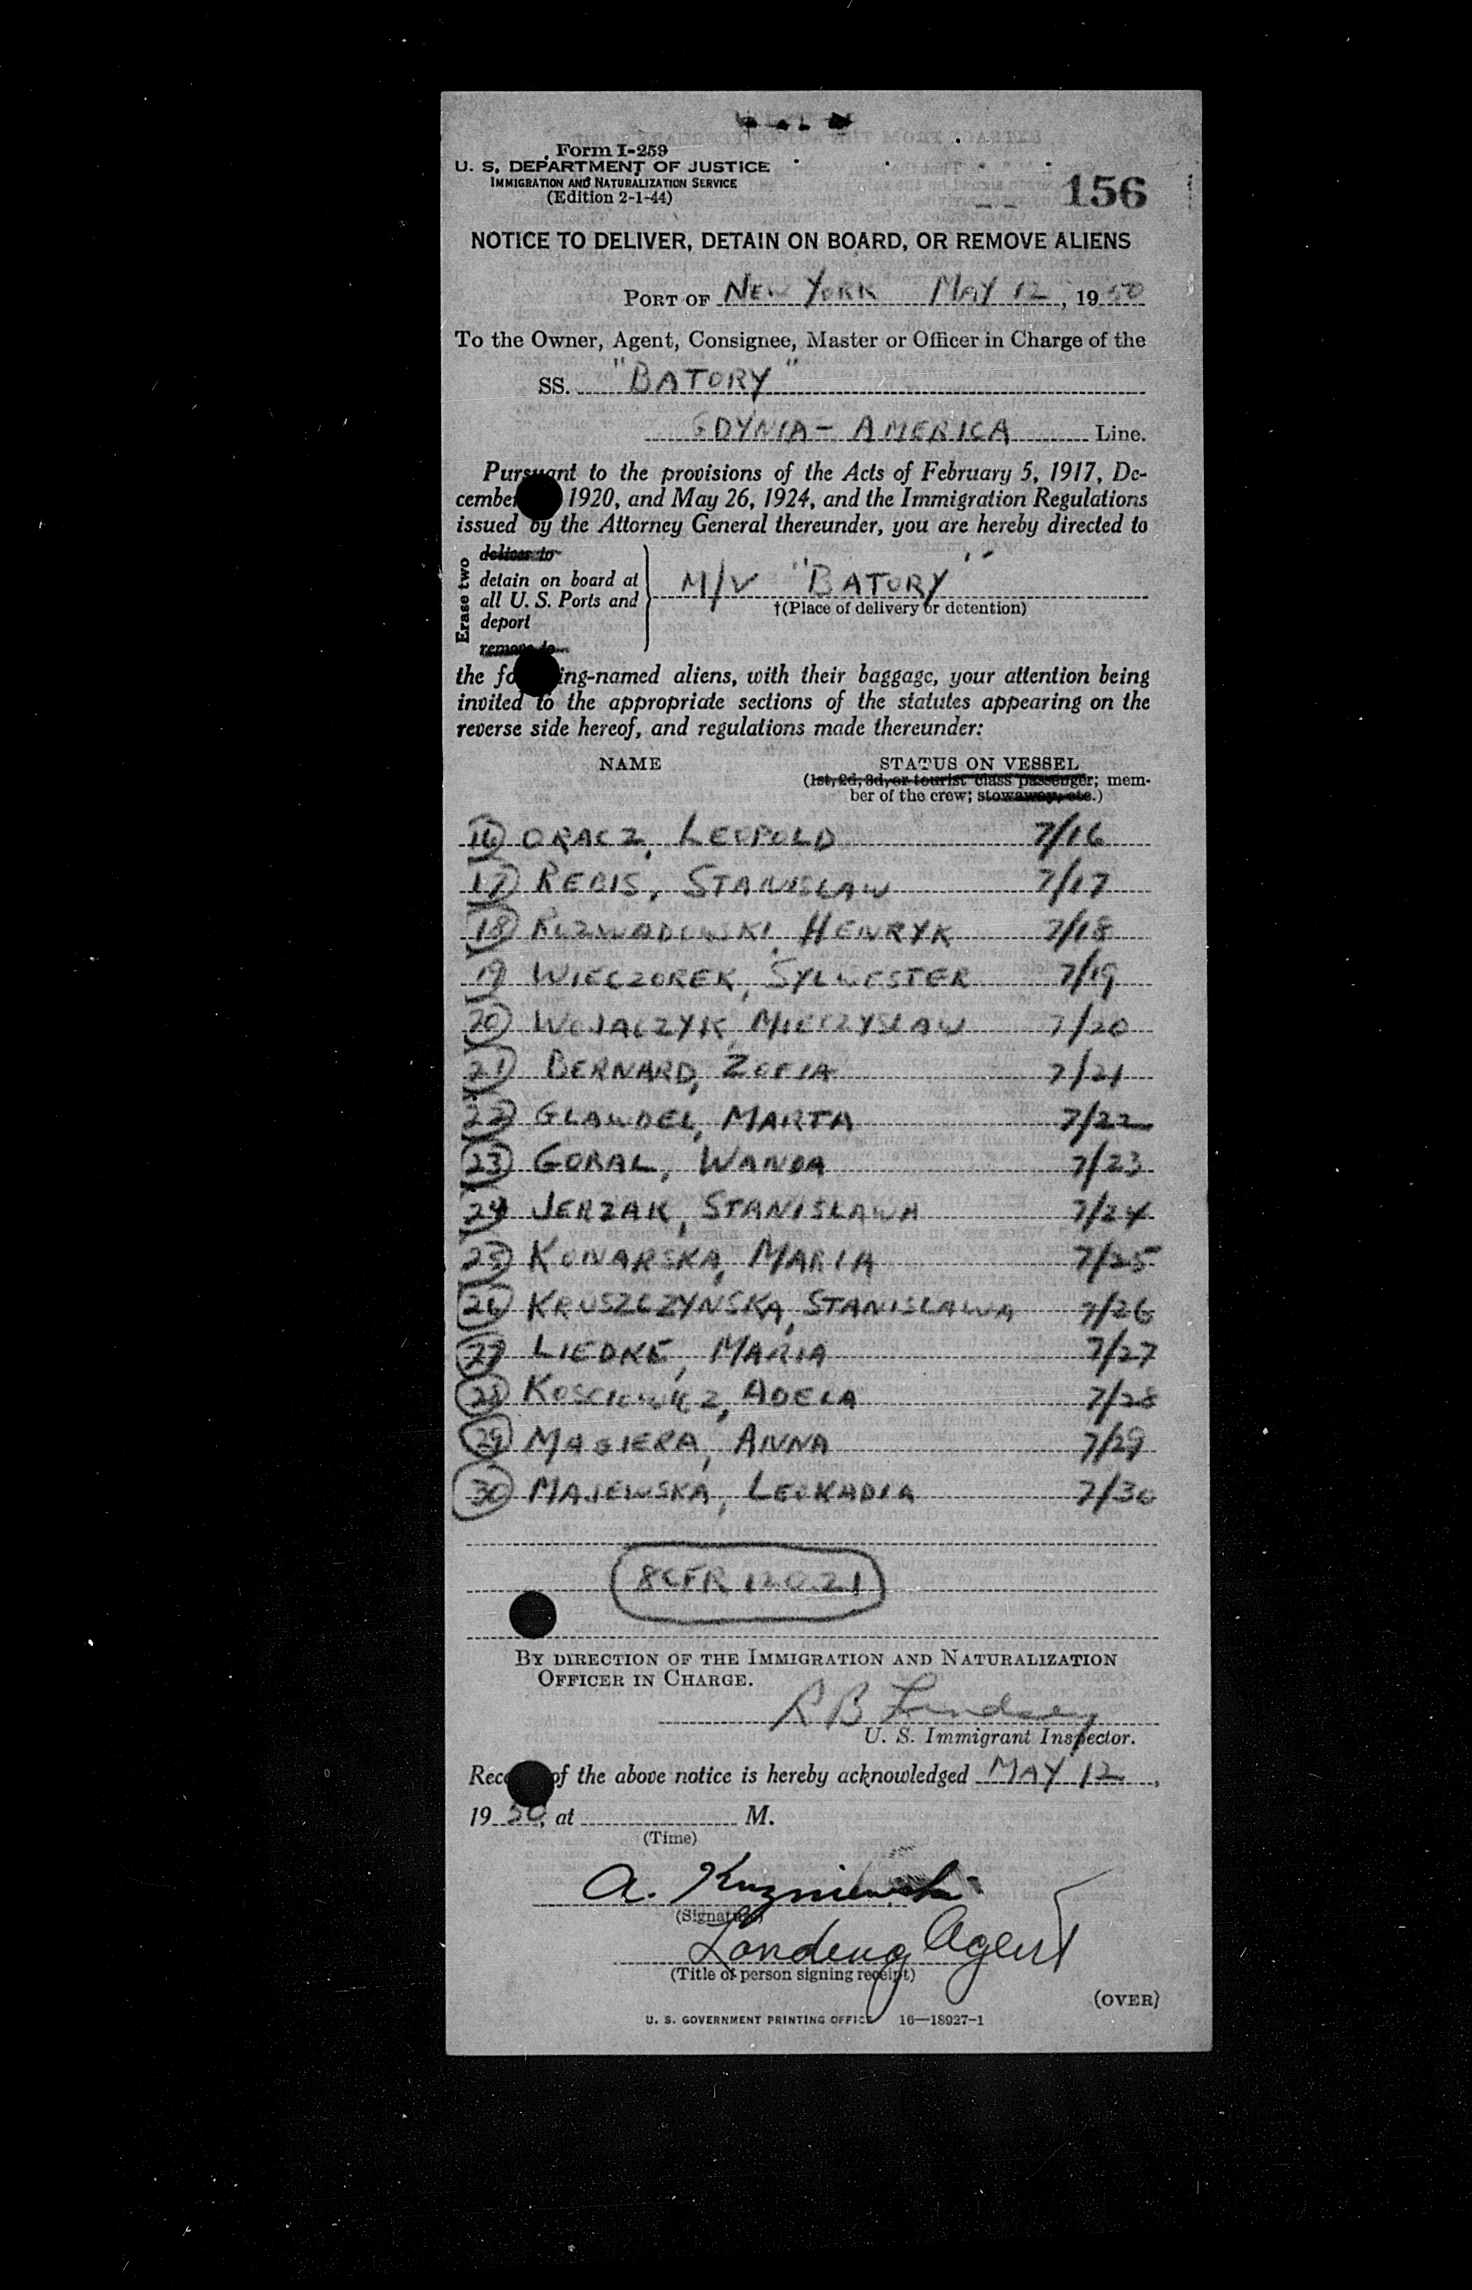 Form I-259
U. S. DEPARTMENT OF JUSTICE
IMMIGRATION AND NATURALIZATION SERVICE
(Edition 2-1-44)
156
NOTICE TO DELIVER, DETAIN ON BOARD, OR REMOVE ALIENS
PORT OF NEW YORK MAY 12, 1950
To the Owner, Agent, Consignee, Master or Officer in Charge of the
SS. "BATORY"
GDYNIA - AMERICA Line.
Pursuant to the provisions of the Acts of February 5, 1917, De-
cember 1920, and May 26, 1924, and the Immigration Regulations
issued by the Attorney General thereunder, you are hereby directed to
Erase two
deliver to
detain on board at
all U. S. Ports and
deport
remove to
M/V "BATORY"
†(Place of delivery or detention)
the following-named aliens, with their baggage, your attention being
invited to the appropriate sections of the statutes appearing on the
reverse side hereof, and regulations made thereunder:
NAME STATUS ON VESSEL
(1st, 2d, 3d, or tourist class passenger; mem-
ber of the crew; stowaway, etc.)
16 ORACZ, LEOPOLD 7/16
17 REBIS, STANISLAW 7/17
18 ROZWADOWSKI, HENRYK 7/18
19 WIECZOREK, SYLWESTER 7/19
20 WOJACZYK, MIECZYSLAW 7/20
21 BERNARD, ZOFIA 7/21
22 GLAWDEL, MARTA 7/22
23 GORAL, WANDA 7/23
24 JERZAK, STANISLAWA 7/24
25 KONARSKA, MARIA 7/25
26 KRUSZCZYNSKA, STANISLAWA 7/26
27 LIEDKE, MARIA 7/27
28 KOSCIOWICZ, ADELA 7/28
29 MAGIERA, ANNA 7/29
30 MAJEWSKA, LEOKADIA 7/30
8 CFR 120.21
BY DIRECTION OF THE IMMIGRATION AND NATURALIZATION
OFFICER IN CHARGE.
R B Lindsey
U. S. Immigrant Inspector.
Rec of the above notice is hereby acknowledged MAY 12,
1950, at M.
(Time)
A. Kuzniewski
(Signature)
Landing Agent
(Title of person signing receipt)
(OVER)
U. S. GOVERNMENT PRINTING OFFICE 16—18927-1